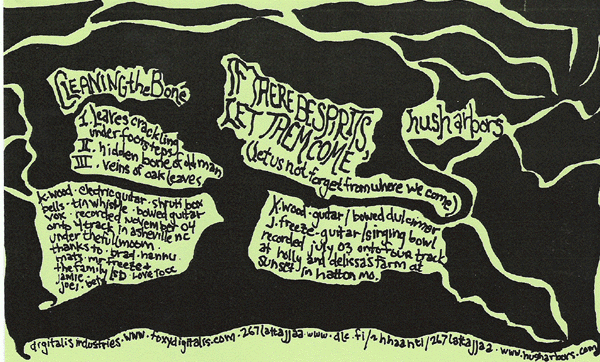 CLEANING the Bone
I. leaves crackling
underfoot steps
II. hidden bone of old man
III. veins of oak leaves
K. wood · electric guitar · shruti box
bells · tin whistle · bowed guitar
vox · recorded november 04
onto 4 track in asheville nc
under the full moon.
thanks to · brad · hannu
mats · mr freeze +
the family
Jamie
Joel. ben
IF THERE BE SPIRITS,
LET THEM COME
(let us not forget from where we come)
K. wood · guitar / bowed dulcimer
J. freeze · guitar / singing bowl
recorded july 03 onto four track
at holly and delissa's farm at
sunset in hatton mo.
hush arbors
digitalis industries · www.foxydigitalis.com · 267 lattajjaa · www.dlc.fi/~hhaahti/267lattajjaa · www.husharbors.com